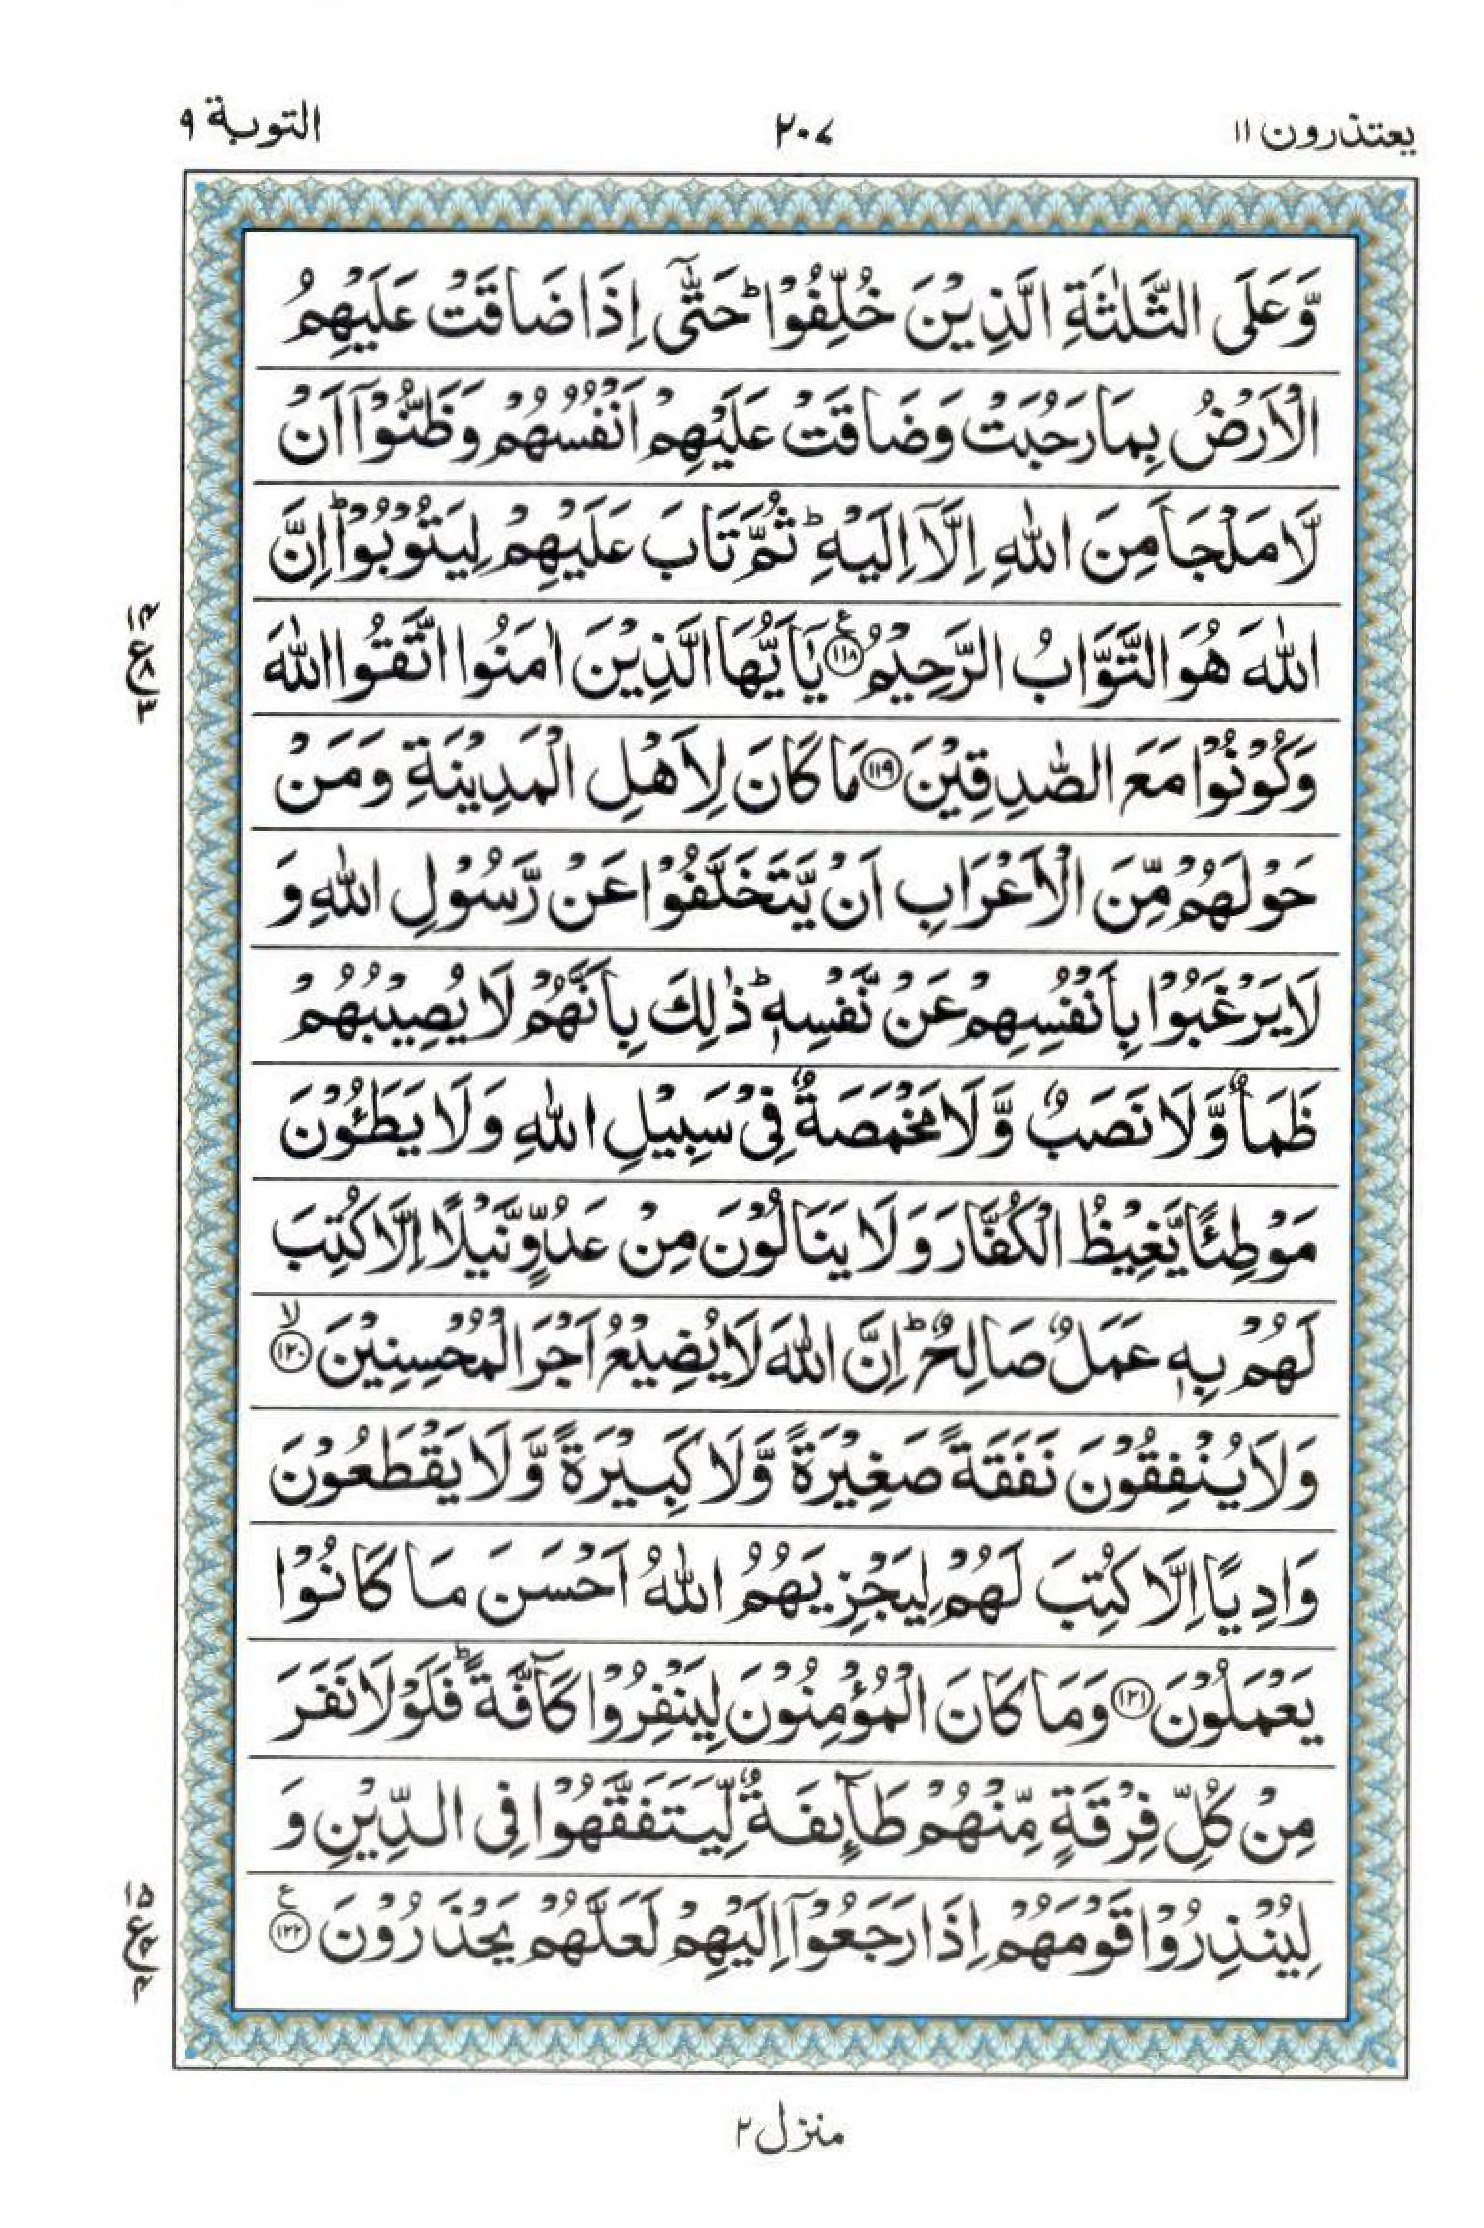 یعتذرون ۱۱
۲۰۷
التوبة ۹
وَّعَلَى الثَّلٰثَةِ الَّذِيْنَ خُلِّفُوْا ؕ حَتّٰۤى اِذَا ضَاقَتْ عَلَيْهِمُ
الْاَرْضُ بِمَا رَحُبَتْ وَضَاقَتْ عَلَيْهِمْ اَنْفُسُهُمْ وَظَنُّوْۤا اَنْ
لَّا مَلْجَاَ مِنَ اللّٰهِ اِلَّاۤ اِلَيْهِ ؕ ثُمَّ تَابَ عَلَيْهِمْ لِيَتُوْبُوْا ؕ اِنَّ
اللّٰهَ هُوَ التَّوَّابُ الرَّحِيْمُ ۱۱۸ ع يٰۤاَيُّهَا الَّذِيْنَ اٰمَنُوا اتَّقُوا اللّٰهَ
۱۴
ع ۸
۳
وَكُوْنُوْا مَعَ الصّٰدِقِيْنَ ۱۱۹ مَا كَانَ لِاَهْلِ الْمَدِيْنَةِ وَمَنْ
حَوْلَهُمْ مِّنَ الْاَعْرَابِ اَنْ يَّتَخَلَّفُوْا عَنْ رَّسُوْلِ اللّٰهِ وَ
لَا يَرْغَبُوْا بِاَنْفُسِهِمْ عَنْ نَّفْسِهٖ ؕ ذٰلِكَ بِاَنَّهُمْ لَا يُصِيْبُهُمْ
ظَمَاٌ وَّلَا نَصَبٌ وَّلَا مَخْمَصَةٌ فِيْ سَبِيْلِ اللّٰهِ وَلَا يَطَـُٔوْنَ
مَوْطِئًا يَّغِيْظُ الْكُفَّارَ وَلَا يَنَالُوْنَ مِنْ عَدُوٍّ نَّيْلًا اِلَّا كُتِبَ
لَهُمْ بِهٖ عَمَلٌ صَالِحٌ ؕ اِنَّ اللّٰهَ لَا يُضِيْعُ اَجْرَ الْمُحْسِنِيْنَ ۱۲۰ ۙ
وَلَا يُنْفِقُوْنَ نَفَقَةً صَغِيْرَةً وَّلَا كَبِيْرَةً وَّلَا يَقْطَعُوْنَ
وَادِيًا اِلَّا كُتِبَ لَهُمْ لِيَجْزِيَهُمُ اللّٰهُ اَحْسَنَ مَا كَانُوْا
يَعْمَلُوْنَ ۱۲۱ وَمَا كَانَ الْمُؤْمِنُوْنَ لِيَنْفِرُوْا كَآفَّةً ؕ فَلَوْلَا نَفَرَ
مِنْ كُلِّ فِرْقَةٍ مِّنْهُمْ طَآئِفَةٌ لِّيَتَفَقَّهُوْا فِى الدِّيْنِ وَ
لِيُنْذِرُوْا قَوْمَهُمْ اِذَا رَجَعُوْۤا اِلَيْهِمْ لَعَلَّهُمْ يَحْذَرُوْنَ ۱۲۲ ع
۱۵
ع ۴
۴
منزل ۲